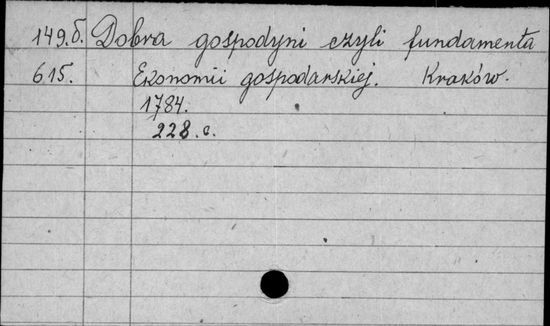 149.б. Dobra gospodyni czyli fundamenta
615. Ekonomii gospodarskiej. Kraków.
1784.
228.c.